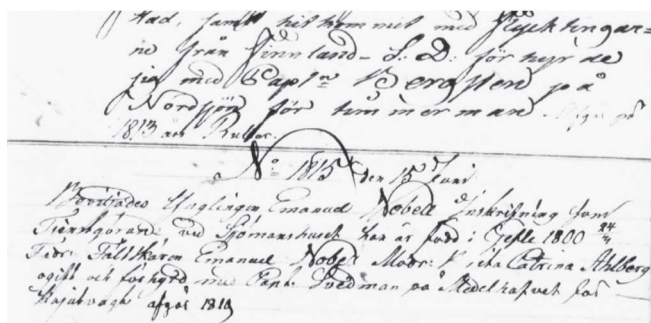 stad, samt hitkommit med Flycktingar=
ne från Finnland - S: D: förhyrde
sig med Capt:n Bergsten på
Nordsjön för timmerman. afgår på
1813 års Rullor.
No 1815 den 15 Juni
Beviljades Ynglingen Emanuel Nobell Inskrifning som
Tjenstgörande vid Sjömanshuset han är född i Gefle 1800 24/3
Fadr: Fältskären Emanuel Nobel Modr: Catrina Ahlberg
ogift och förhyrd med Capt: Svedman på Medelhafvet för
Kajutvagt afgår 1818